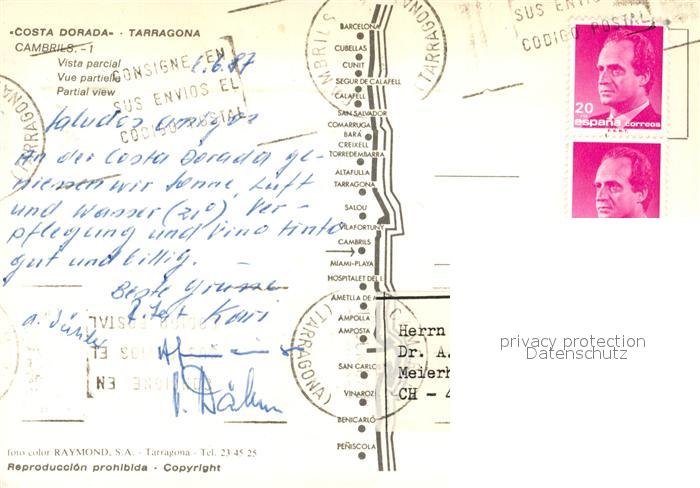 «COSTA DORADA» - TARRAGONA
CAMBRILS. -1
Vista parcial
Vue partielle
Partial view
CONSIGNE EN
SUS ENVIOS EL
CODIGO POSTAL
2.6.87
Saludos amigos
An der Costa Dorada ge-
niessen wir Sonne, Luft
und Wasser (21°). Ver-
pflegung und Vino tinto
gut und billig.
Beste Grüsse
Kari
V. Dähn
BARCELONA
CUBELLAS
CUNIT
SEGUR DE CALAFELL
CALAFELL
SAN SALVADOR
COMARRUGA
BARÁ
CREIXELL
TORREDEMBARRA
ALTAFULLA
TARRAGONA
SALOU
VILAFORTUNY
CAMBRILS
MIAMI-PLAYA
HOSPITALET DEL I
AMETLLA DE
AMPOLLA
AMPOSTA
SAN CARLOS
VINAROZ
BENICARLÓ
PEÑISCOLA
CAMBRILS
(TARRAGONA)
SUS ENVIOS EL
CODIGO POSTAL
20
españa correos
(TARRAGONA)
(TARRAGONA)
CODIGO POSTAL
SUS ENVIOS EL
CONSIGNE EN
Herrn
Dr. A.
Meierh
CH - 4
privacy protection
Datenschutz
foto color RAYMOND, S.A. - Tarragona - Tel. 23 45 25
Reproducción prohibida - Copyright